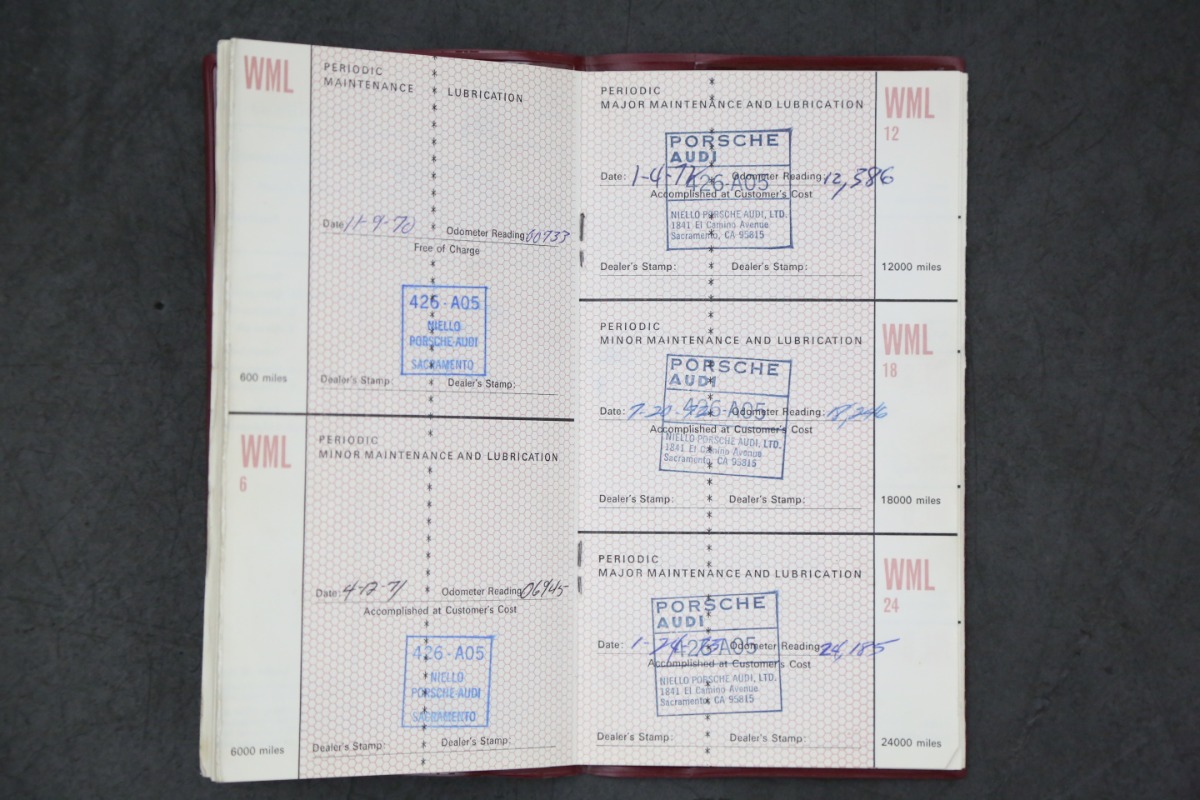 WML
PERIODIC
MAINTENANCE
LUBRICATION
Date 11-9-70 Odometer Reading: 00733
Free of Charge
426-A05
NIELLO
PORSCHE AUDI
SACRAMENTO
600 miles
Dealer's Stamp: Dealer's Stamp:
WML
6
PERIODIC
MINOR MAINTENANCE AND LUBRICATION
Date: 4-12-71 Odometer Reading: 06945
Accomplished at Customer's Cost
426-A05
NIELLO
PORSCHE AUDI
SACRAMENTO
6000 miles
Dealer's Stamp: Dealer's Stamp:
PERIODIC
MAJOR MAINTENANCE AND LUBRICATION
WML
12
PORSCHE
AUDI
Date: 1-4-72 Odometer Reading: 12,386
426-A05
Accomplished at Customer's Cost
NIELLO PORSCHE AUDI, LTD.
1841 El Camino Avenue
Sacramento, CA 95815
Dealer's Stamp: Dealer's Stamp:
12000 miles
PERIODIC
MINOR MAINTENANCE AND LUBRICATION
WML
18
PORSCHE
AUDI
Date: 7-20-72 Odometer Reading: 18,246
426-A05
Accomplished at Customer's Cost
NIELLO PORSCHE AUDI, LTD.
1841 El Camino Avenue
Sacramento, CA 95815
Dealer's Stamp: Dealer's Stamp:
18000 miles
PERIODIC
MAJOR MAINTENANCE AND LUBRICATION
WML
24
PORSCHE
AUDI
Date: 1-24-73 Odometer Reading: 24,185
426-A05
Accomplished at Customer's Cost
NIELLO PORSCHE AUDI, LTD.
1841 El Camino Avenue
Sacramento, CA 95815
Dealer's Stamp: Dealer's Stamp:
24000 miles